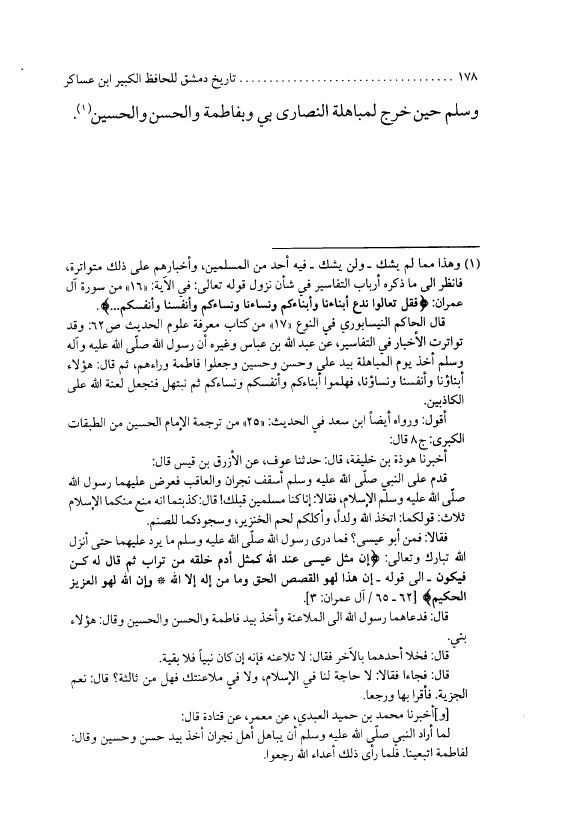 ١٧٨ .................................... تاريخ دمشق للحافظ الكبير ابن عساكر
وسلم حين خرج لمباهلة النصارى بي وبفاطمة والحسن والحسين(١).
(١) وهذا مما لم يشك ـ ولن يشك ـ فيه أحد من المسلمين، وأخبارهم على ذلك متواترة،
فانظر الى ما ذكره أرباب التفاسير في شأن نزول قوله تعالى: في الآية: «١٦» من سورة آل
عمران: ﴿فقل تعالوا ندع أبناءنا وأبناءكم ونساءنا ونساءكم وأنفسنا وأنفسكم...﴾.
قال الحاكم النيسابوري في النوع «١٧» من كتاب معرفة علوم الحديث ص٦٢: وقد
تواترت الأخبار في التفاسير، عن عبد الله بن عباس وغيره أن رسول الله صلّى الله عليه وآله
وسلم أخذ يوم المباهلة بيد علي وحسن وحسين وجعلوا فاطمة وراءهم، ثم قال: هؤلاء
أبناؤنا وأنفسنا ونساؤنا، فهلموا أبناءكم وأنفسكم ونساءكم ثم نبتهل فنجعل لعنة الله على
الكاذبين.
أقول: ورواه أيضاً ابن سعد في الحديث: «٢٥» من ترجمة الإمام الحسين من الطبقات
الكبرى: ج٨ قال:
أخبرنا هوذة بن خليفة، قال: حدثنا عوف، عن الأزرق بن قيس قال:
قدم على النبي صلّى الله عليه وسلم أسقف نجران والعاقب فعرض عليهما رسول الله
صلّى الله عليه وسلّم الإسلام، فقالا: إنا كنا مسلمين قبلك! قال: كذبتما انه منع منكما الإسلام
ثلاث: قولكما: اتخذ الله ولداً، وأكلكم لحم الخنزير، وسجودكما للصنم.
فقالا: فمن أبو عيسى؟ فما درى رسول الله صلّى الله عليه وسلم ما يرد عليهما حتى أنزل
الله تبارك وتعالى: ﴿إن مثل عيسى عند الله كمثل آدم خلقه من تراب ثم قال له كن
فيكون ـ الى قوله ـ إن هذا لهو القصص الحق وما من إله إلا الله * وإن الله لهو العزيز
الحكيم﴾ [٦٢ ـ ٦٥ / آل عمران: ٣].
قال: فدعاهما رسول الله الى الملاعنة وأخذ بيد فاطمة والحسن والحسين وقال: هؤلاء
بني.
قال: فخلا أحدهما بالآخر فقال: لا تلاعنه فإنه إن كان نبياً فلا بقية.
قال: فجاءا فقالا: لا حاجة لنا في الإسلام، ولا في ملاعنتك فهل من ثالثة؟ قال: نعم
الجزية. فأقرا بها ورجعا.
[و]أخبرنا محمد بن حميد العبدي، عن معمر، عن قتادة قال:
لما أراد النبي صلّى الله عليه وسلم أن يباهل أهل نجران أخذ بيد حسن وحسين وقال:
لفاطمة اتبعينا. فلما رأى ذلك أعداء الله رجعوا.